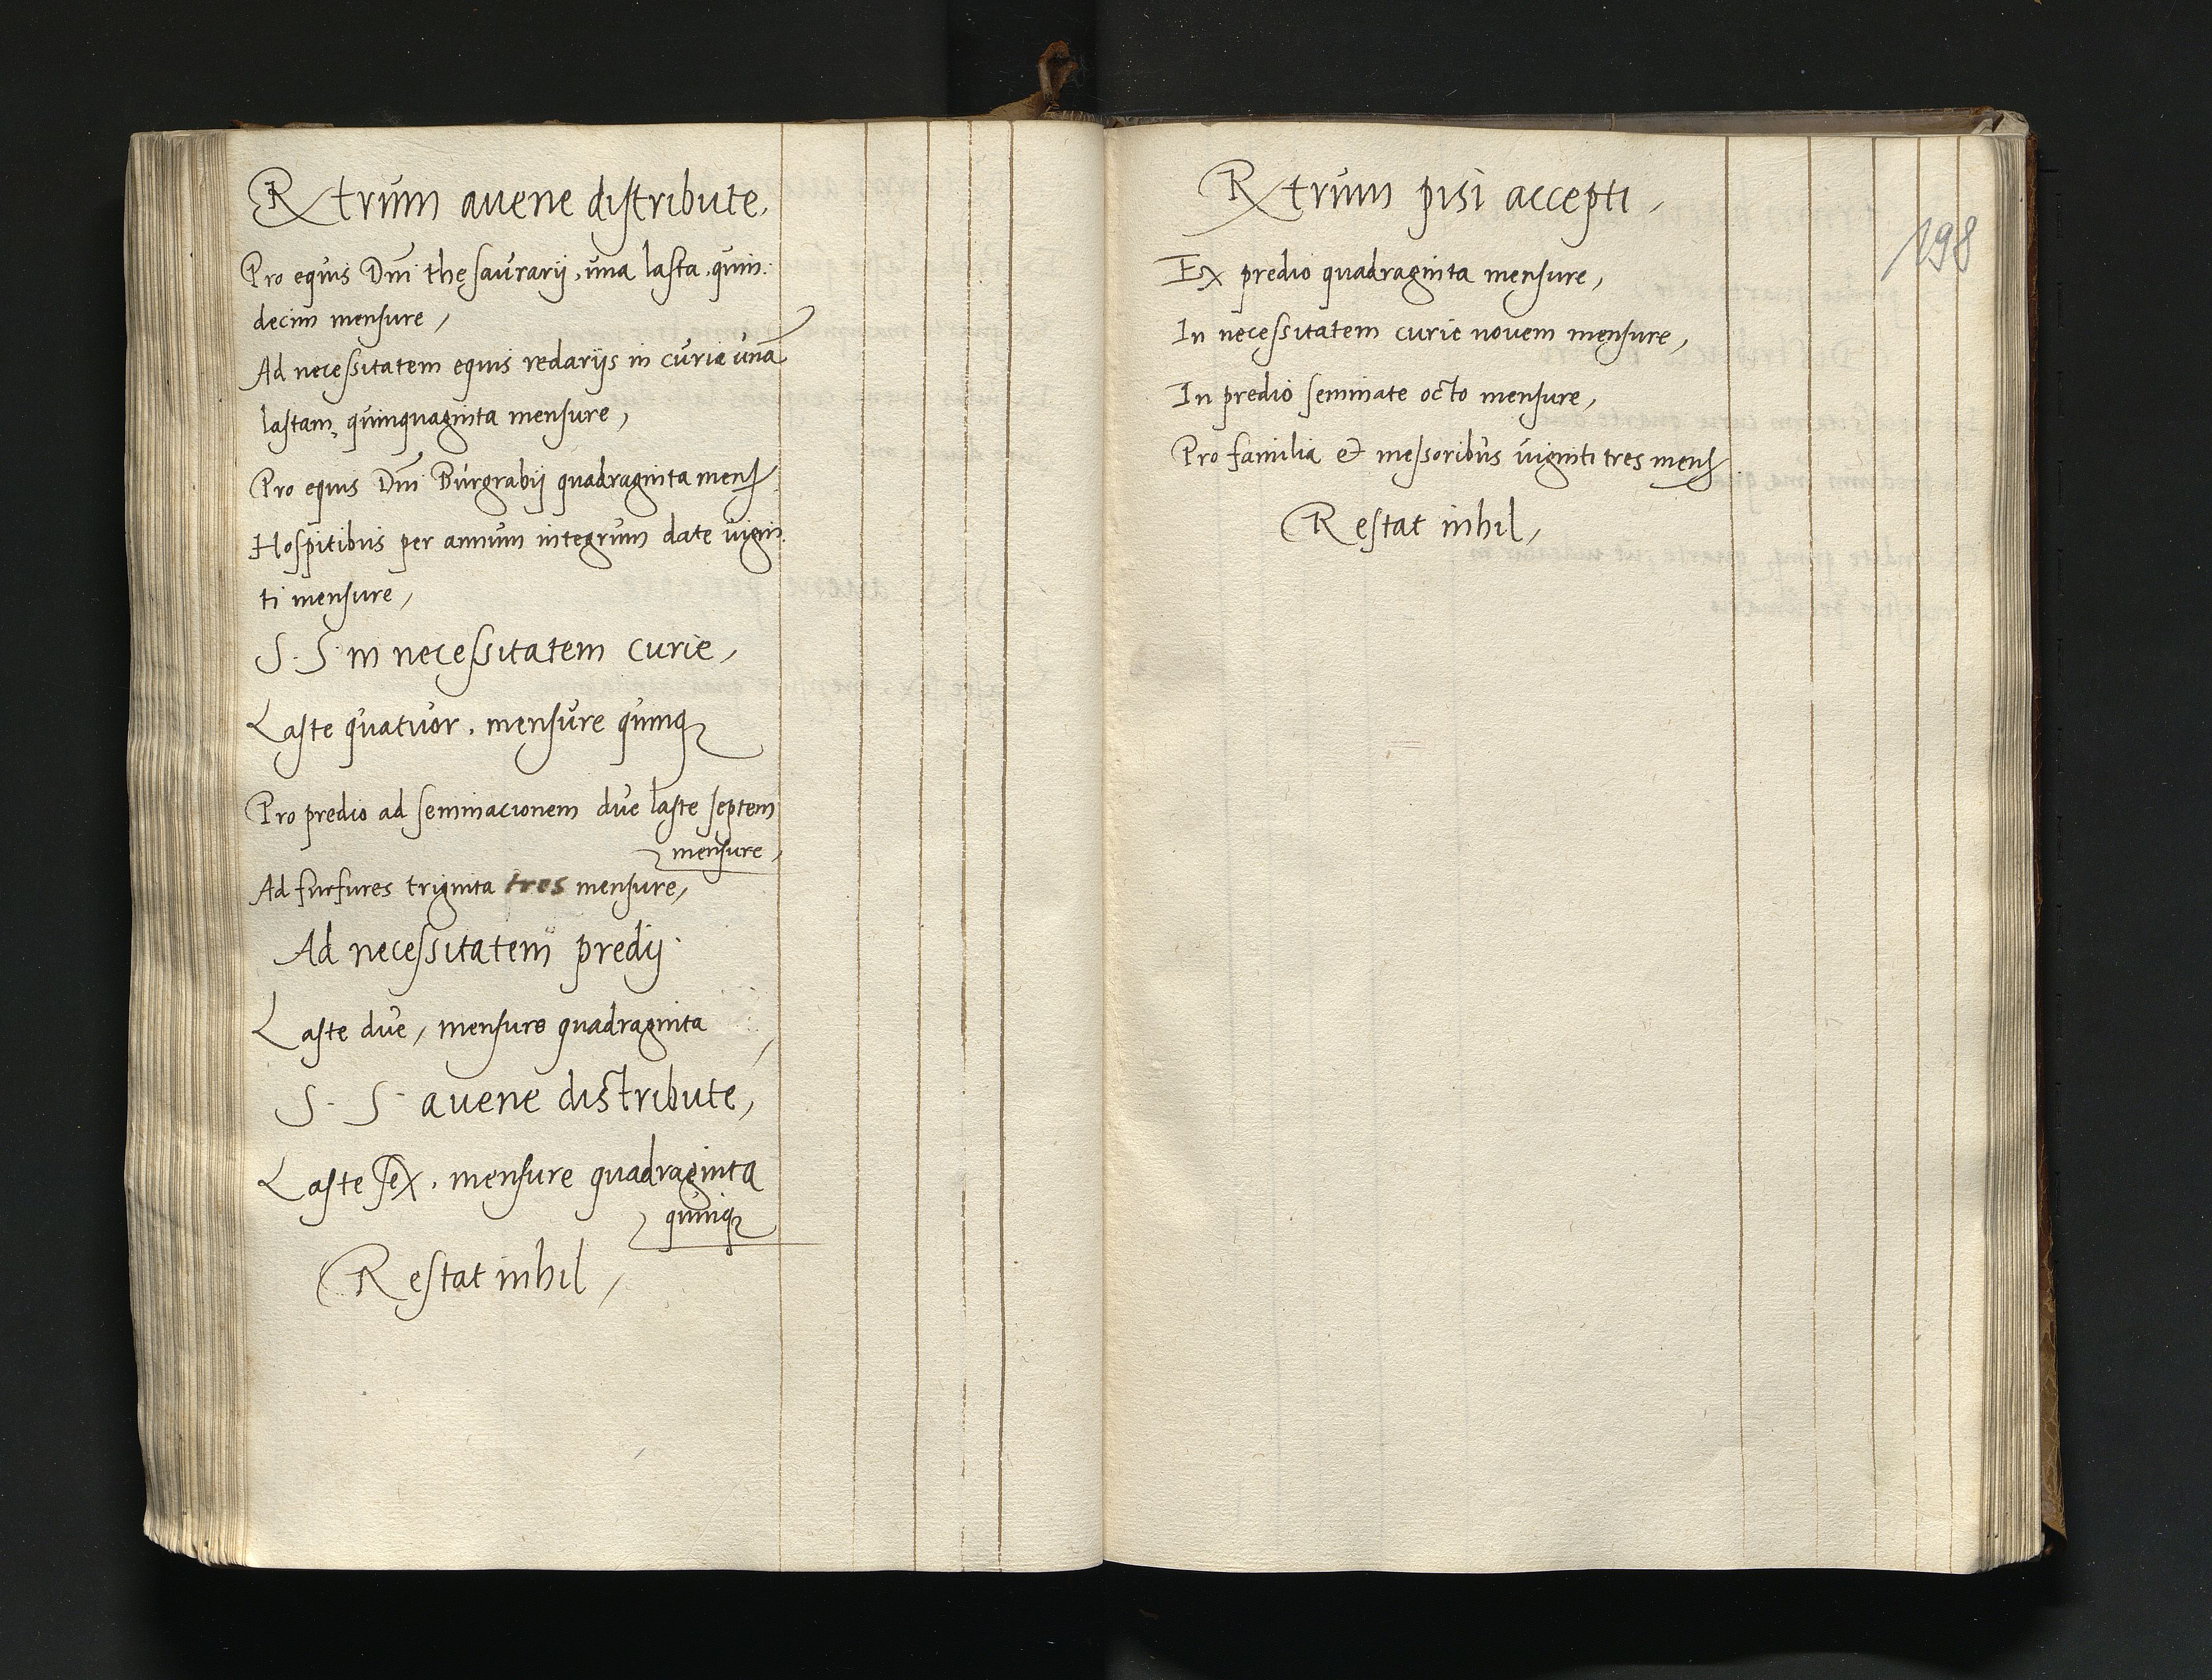 Rtrum auene distribute,
Pro equis Dni thęsaurarij, una lasta, quin:
decim mensure,
Ad necessitatem equis redarijs in curia unā
lastam, quinquaginta mensure,
Pro equis Dni Burgrabij quadraginta mens
Hospitibus per annum integrum date uigin:
ti mensure,
S. S. in necessitatem curie,
Laste quatuor, mensure quinq
Pro predio ad seminacionem due laste septem
mensure,
Ad furfures triginta tres mensure,
Ad necessitatem predij.
Laste due, mensure quadraginta
S. S. auene distribute,
Laste sex, mensure quadraginta
quinq
Restat nihil,
Rtrum pisi accepti,
198
Ex predio quadraginta mensure,
In necessitatem curie nouem mensure,
In predio seminate octo mensure,
Pro familia et messoribus uiginti tres mens
Restat nihil,